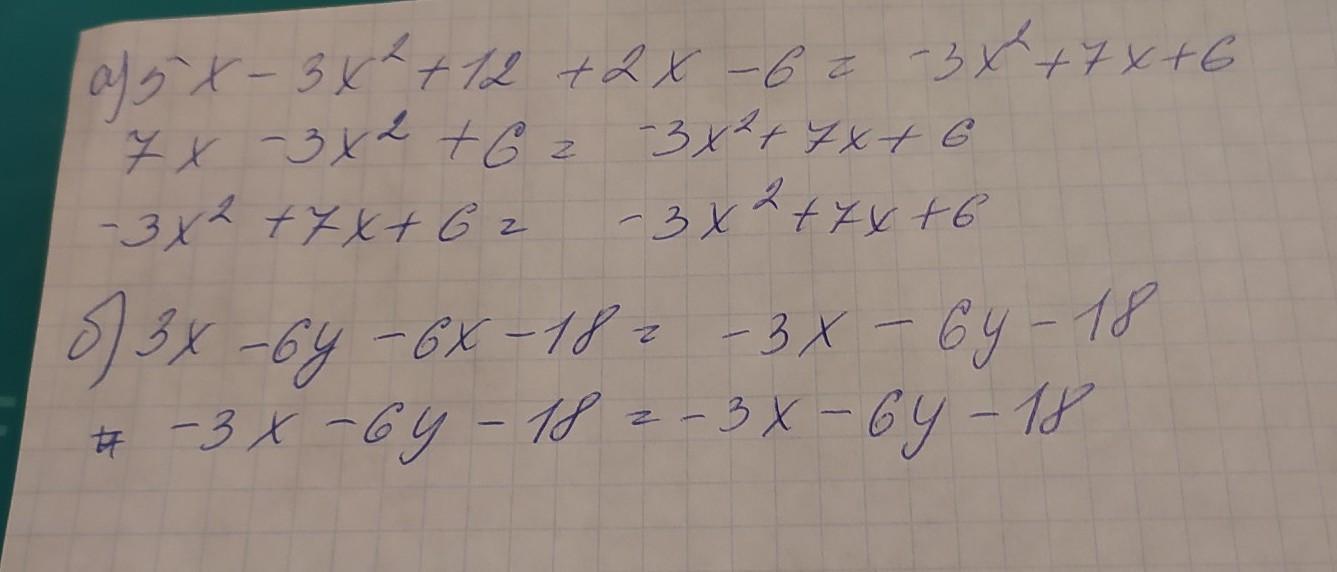 а) 5x - 3x² + 12 + 2x - 6 = -3x² + 7x + 6
7x - 3x² + 6 = -3x² + 7x + 6
-3x² + 7x + 6 = -3x² + 7x + 6
б) 3x - 6y - 6x - 18 = -3x - 6y - 18
-3x - 6y - 18 = -3x - 6y - 18